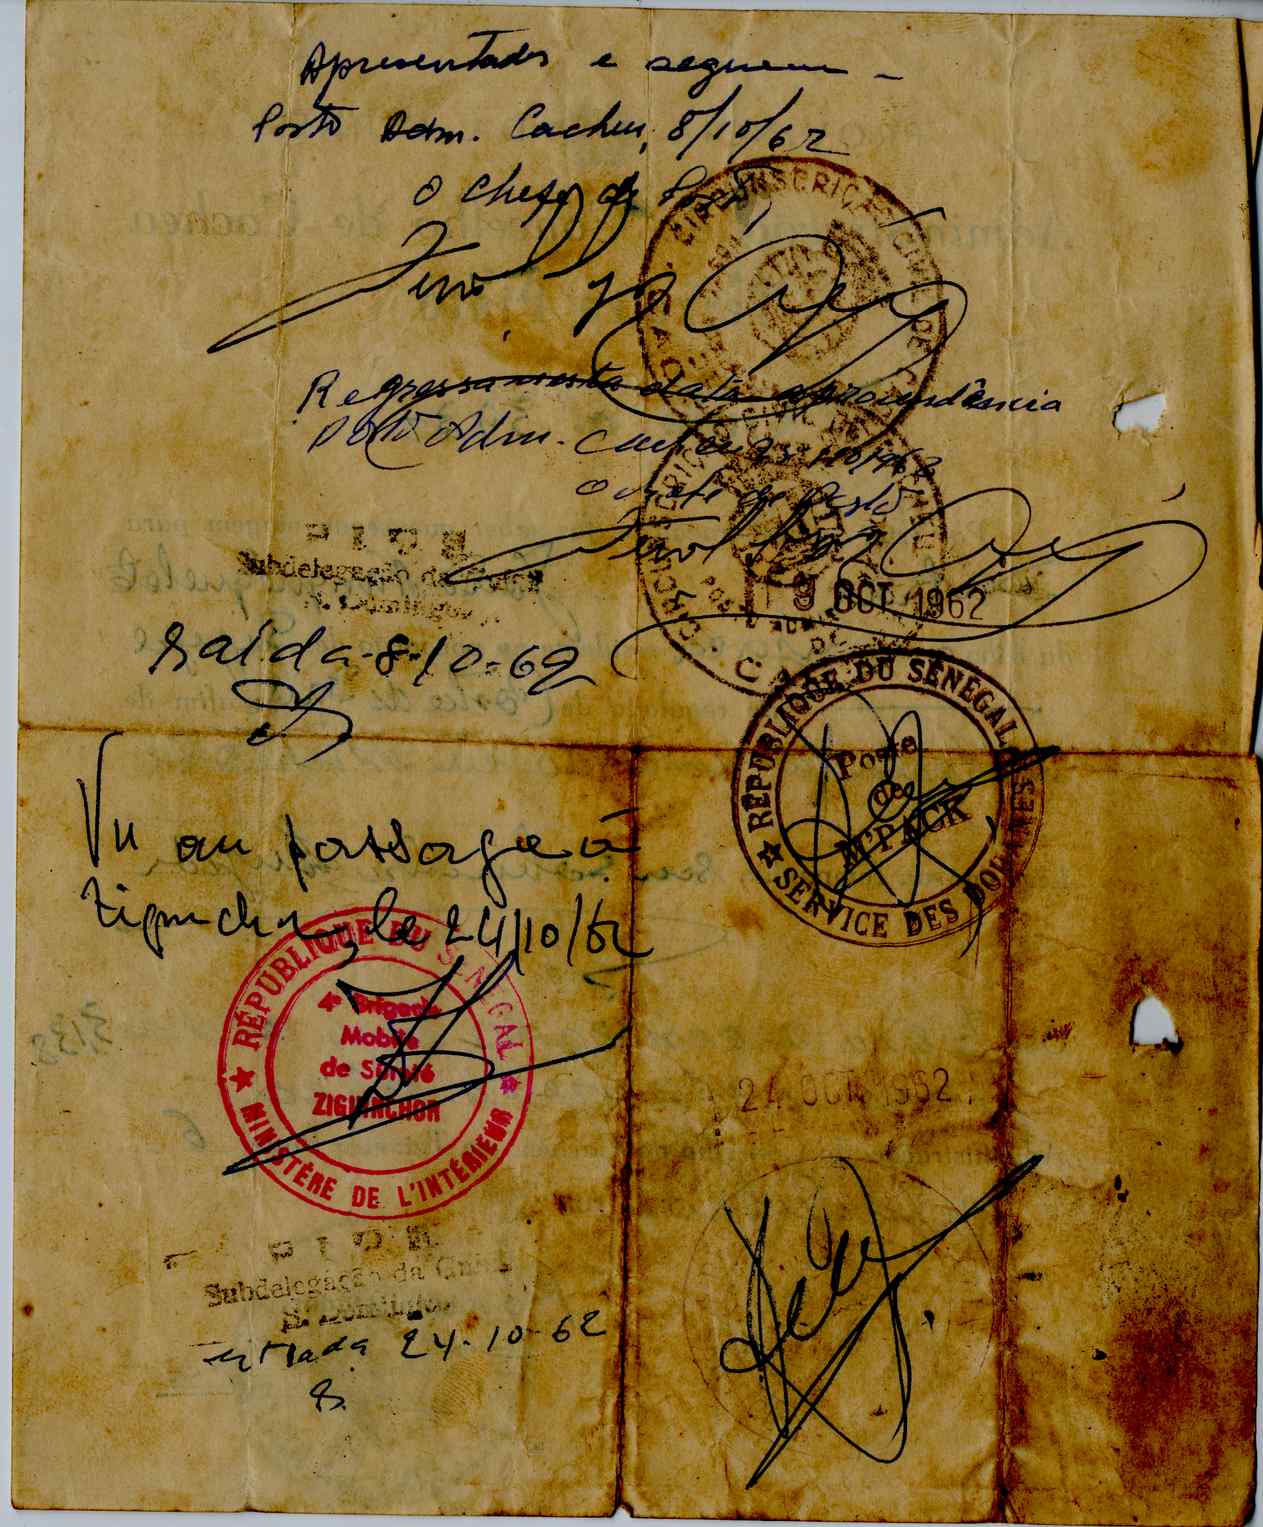 Apresentados e seguem -
Posto Adm. Cacheu, 8/10/62
O Chefe de Posto
CIRCUNSCRIÇÃO CIVIL DE
Regressa nesta data a procedência
Posto Adm. Cacheu 25/10/1962
O Chefe de Posto
PIDE
Subdelegação da Guiné
S. Domingos
9 OCT. 1962
Saída-8-10-62
RÉPUBLIQUE DU SÉNÉGAL
Poste
de
M'PACK
SERVICE DES DOUANES
Vu au passage à
Ziguinchor, le 24/10/62
RÉPUBLIQUE DU SÉNÉGAL
4e Brigade
Mobile
de Sûreté
ZIGUINCHOR
MINISTÈRE DE L'INTÉRIEUR
24 OCT. 1962
PIDE
Subdelegação da Guiné
S. Domingos
entrada 24-10-62